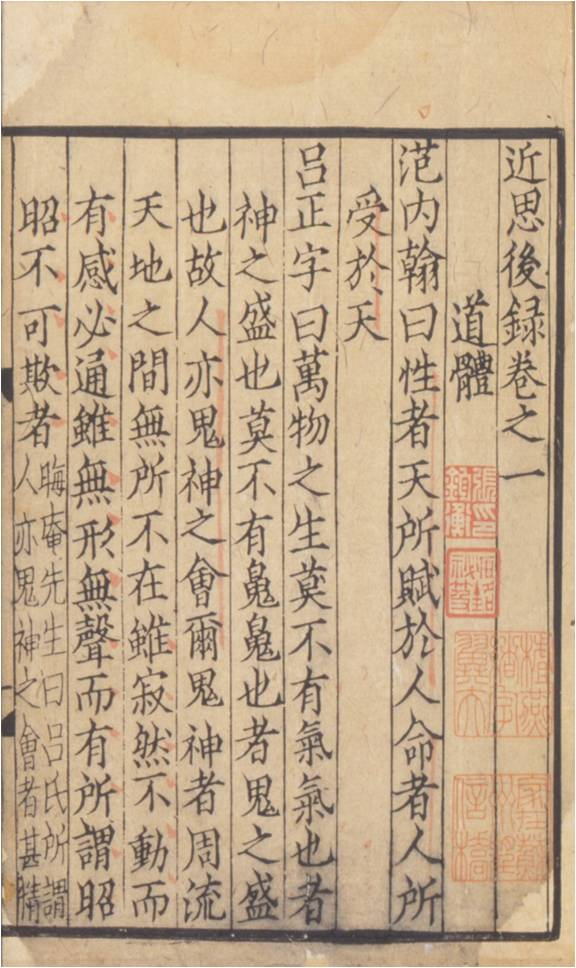 近思後録卷之一
道體
范内翰曰性者天所賦於人命者人所
受於天
吕正字曰萬物之生莫不有氣氣也者
神之盛也莫不有魄魄也者鬼之盛
也故人亦鬼神之會爾鬼神者周流
天地之間無所不在雖寂然不動而
有感必通雖無形無聲而有所謂昭
昭不可欺者
晦庵先生曰吕氏所謂
人亦鬼神之會者甚精